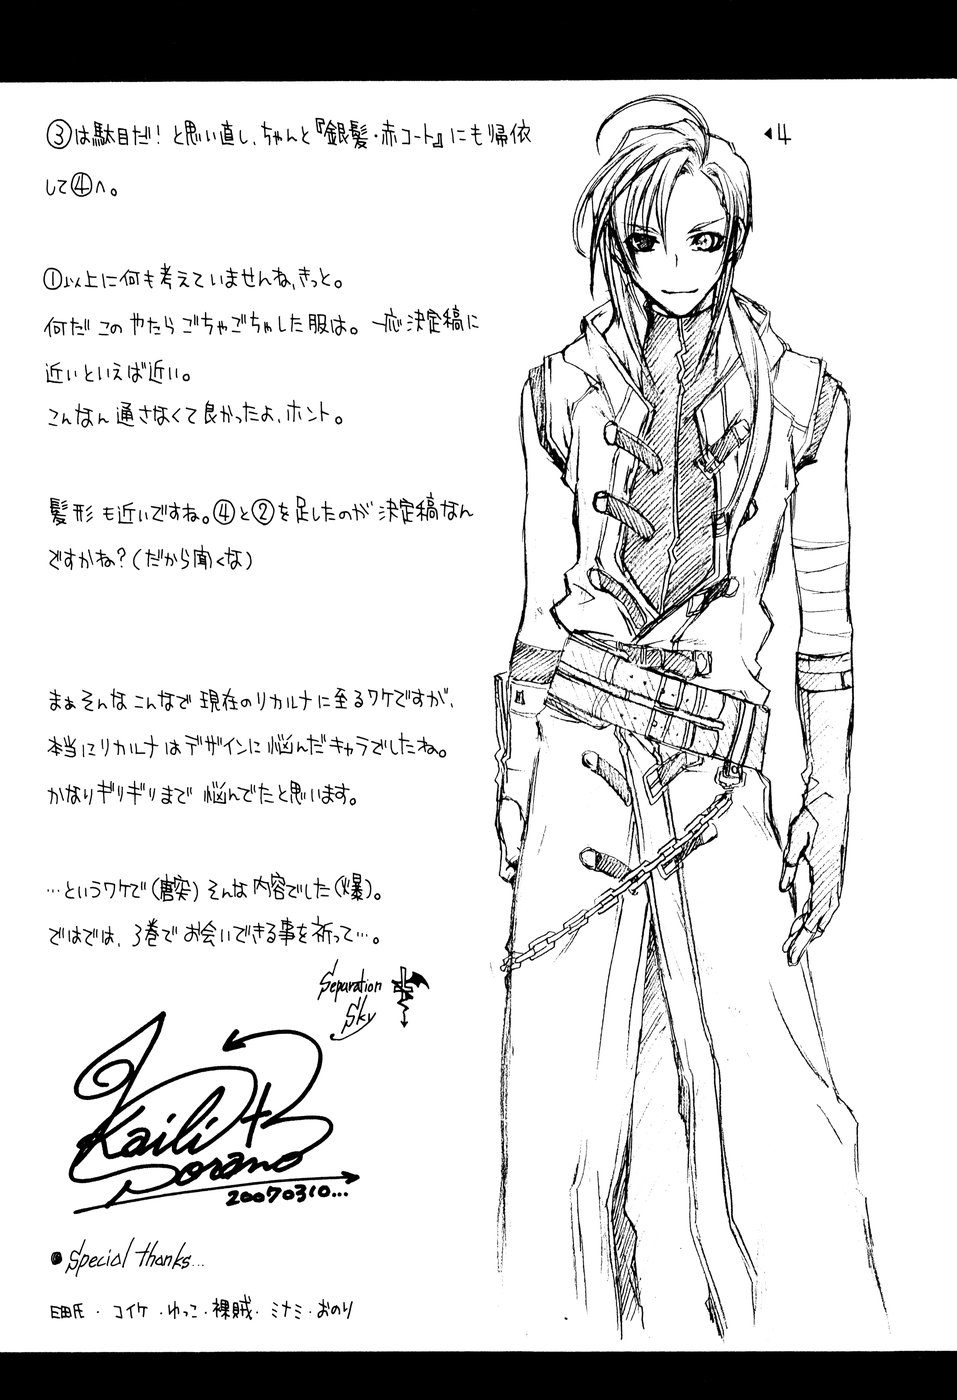 ③は駄目だ！と思い直し、ちゃんと『銀髪・赤コート』にも帰依
して④へ。
①以上に何も考えていませんね、きっと。
何だこのやたらごちゃごちゃした服は。一応決定稿に
近いといえば近い。
こんなん通さなくて良かったよ、ホント。
髪形も近いですね。④と②を足したのが決定稿なん
ですかね？(だから聞くな)
まぁそんなこんなで現在のリカルナに至るワケですが、
本当にリカルナはデザインに悩んだキャラでしたね。
かなりギリギリまで悩んでたと思います。
…というワケで(唐突)そんな内容でした(爆)。
ではでは、3巻でお会いできる事を祈って…。
Separation
Sky
Kaili
Sorano
20070310...
●Special thanks...
田氏・コイケ・ゆっこ・裸賊・ミナミ・おのり
◀4